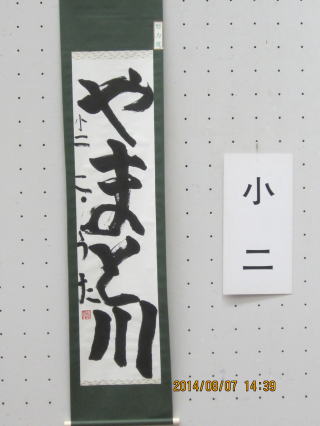 やまと川
小二
小
二
2014/09/07 14:39